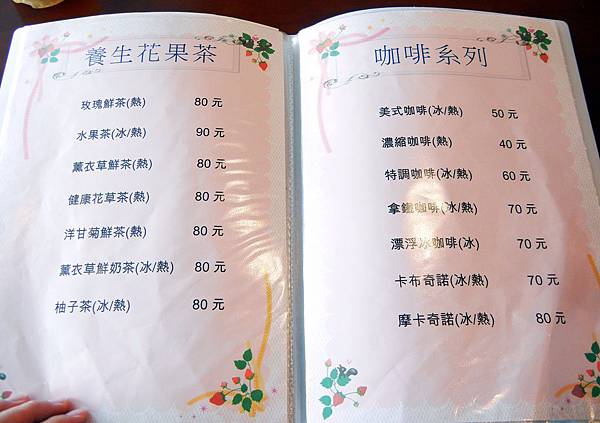 養生花果茶
玫瑰鮮茶(熱) 80 元
水果茶(冰/熱) 90 元
薰衣草鮮茶(熱) 80 元
健康花草茶(熱) 80 元
洋甘菊鮮茶(熱) 80 元
薰衣草鮮奶茶(冰/熱) 80 元
柚子茶(冰/熱) 80 元
咖啡系列
美式咖啡(冰/熱) 50 元
濃縮咖啡(熱) 40 元
特調咖啡(冰/熱) 60 元
拿鐵咖啡(冰/熱) 70 元
漂浮冰咖啡(冰) 70 元
卡布奇諾(冰/熱) 70 元
摩卡奇諾(冰/熱) 80 元